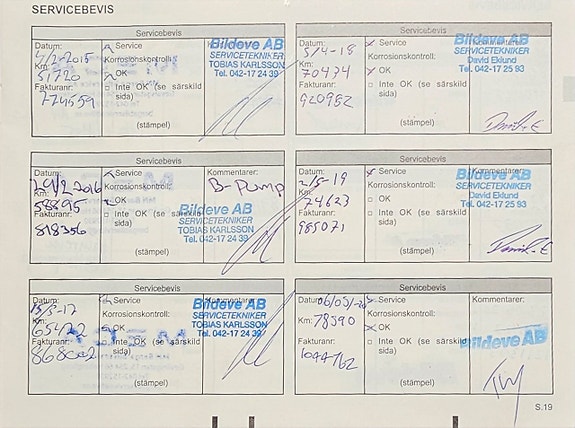 SERVICEBEVIS
Servicebevis
Datum: 4/2-2015
Service
Km: 51720
Korrosionskontroll:
OK
Fakturanr: 774559
Inte OK (se särskild
sida)
(stämpel)
Bildeve AB
SERVICETEKNIKER
TOBIAS KARLSSON
Tel. 042-17 24 39
Servicebevis
Datum: 5/4-18
Service
Km: 70474
Korrosionskontroll:
OK
Fakturanr: 920952
Inte OK (se särskild
sida)
(stämpel)
Bildeve AB
SERVICETEKNIKER
David Eklund
Tel. 042-17 25 93
Servicebevis
Datum: 29/2 2016
Service
Km: 58895
Korrosionskontroll:
OK
Fakturanr: 818356
Inte OK (se särskild
sida)
(stämpel)
Kommentarer:
B-Pump
Bildeve AB
SERVICETEKNIKER
TOBIAS KARLSSON
Tel. 042-17 24 39
Servicebevis
Datum: 2/5-19
Service
Km: 74623
Korrosionskontroll:
OK
Fakturanr: 985071
Inte OK (se särskild
sida)
(stämpel)
Bildeve AB
SERVICETEKNIKER
David Eklund
Tel. 042-17 25 93
Servicebevis
Datum: 15/5-17
Service
Km: 65422
Korrosionskontroll:
OK
Fakturanr: 868002
Inte OK (se särskild
sida)
(stämpel)
Kommentarer:
Bildeve AB
SERVICETEKNIKER
TOBIAS KARLSSON
Tel. 042-17 24 39
Servicebevis
Datum: 06/05/-20
Service
Km: 78590
Korrosionskontroll:
OK
Fakturanr: 1044762
Inte OK (se särskild
sida)
(stämpel)
Kommentarer:
Bildeve AB
S.19